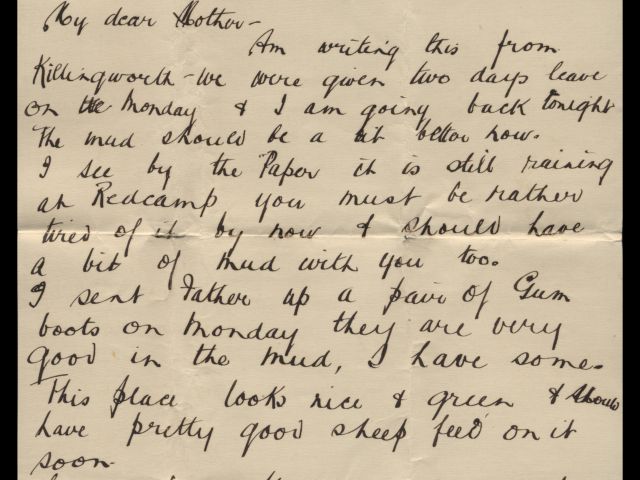 My dear Mother –
Am writing this from
Killingworth – We were given two days leave
on the Monday & I am going back tonight
The mud should be a bit better now.
I see by the Paper it is still raining
at Redcamp you must be rather
tired of it by now & should have
a bit of mud with you too.
I sent Father up a pair of Gum
boots on Monday they are very
good in the mud, I have some.
This place looks nice & green & should
have pretty good sheep feed on it
soon.